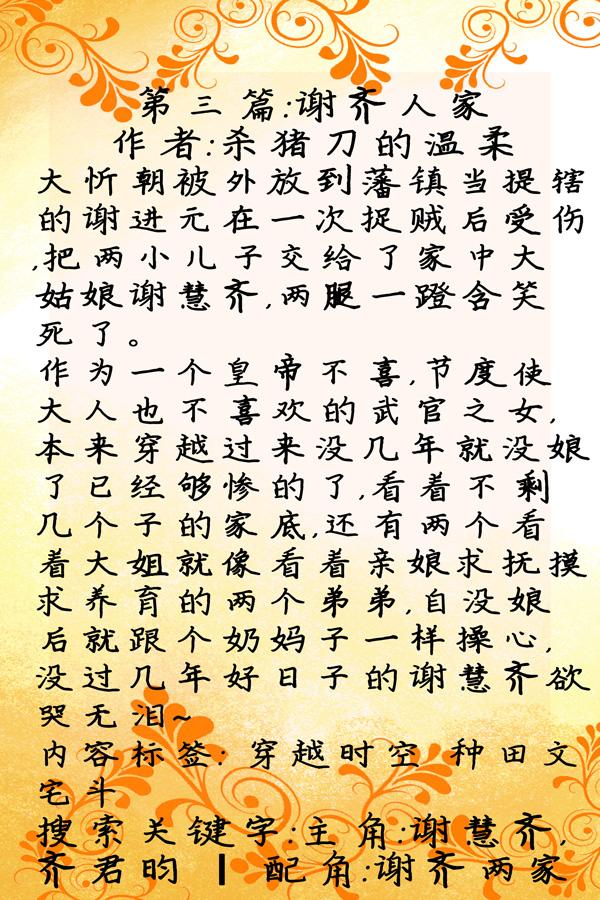 第三篇:谢齐人家
作者:杀猪刀的温柔
大忻朝被外放到藩镇当提辖
的谢进元在一次捉贼后受伤
,把两小儿子交给了家中大
姑娘谢慧齐,两腿一蹬含笑
死了。
作为一个皇帝不喜,节度使
大人也不喜欢的武官之女,
本来穿越过来没几年就没娘
了已经够惨的了,看着不剩
几个子的家底,还有两个看
着大姐就像看着亲娘求抚摸
求养育的两个弟弟,自没娘
后就跟个奶妈子一样操心,
没过几年好日子的谢慧齐欲
哭无泪~
内容标签: 穿越时空 种田文
宅斗
搜索关键字:主角:谢慧齐,
齐君昀 ┃ 配角:谢齐两家